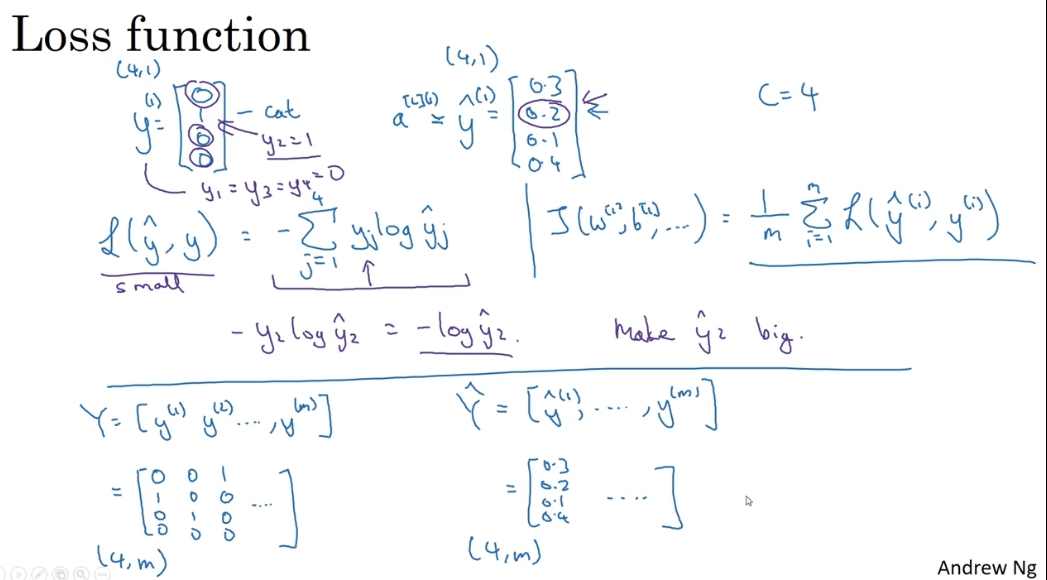 Loss function
(4,1)
y⁽¹⁾ = [0 1 0 0] — cat
y₂ = 1
y₁ = y₃ = y₄ = 0
(4,1)
a^[L](i) = ŷ⁽¹⁾ = [0.3 0.2 0.1 0.4]
C = 4
ℒ(ŷ, y) = - Σ_{j=1}^{4} yⱼ log ŷⱼ
small
J(w^[1], b^[1], ...) = 1/m Σ_{i=1}^{m} ℒ(ŷ⁽ⁱ⁾, y⁽ⁱ⁾)
- y₂ log ŷ₂ = - log ŷ₂. Make ŷ₂ big.
Y = [y⁽¹⁾ y⁽²⁾ ...., y⁽ᵐ⁾]
= [0 0 1
1 0 0 ....
0 1 0
0 0 0]
(4,m)
Ŷ = [ŷ⁽¹⁾, ...., y⁽ᵐ⁾]
= [0.3
0.2
0.1 ....
0.4]
(4,m)
Andrew Ng